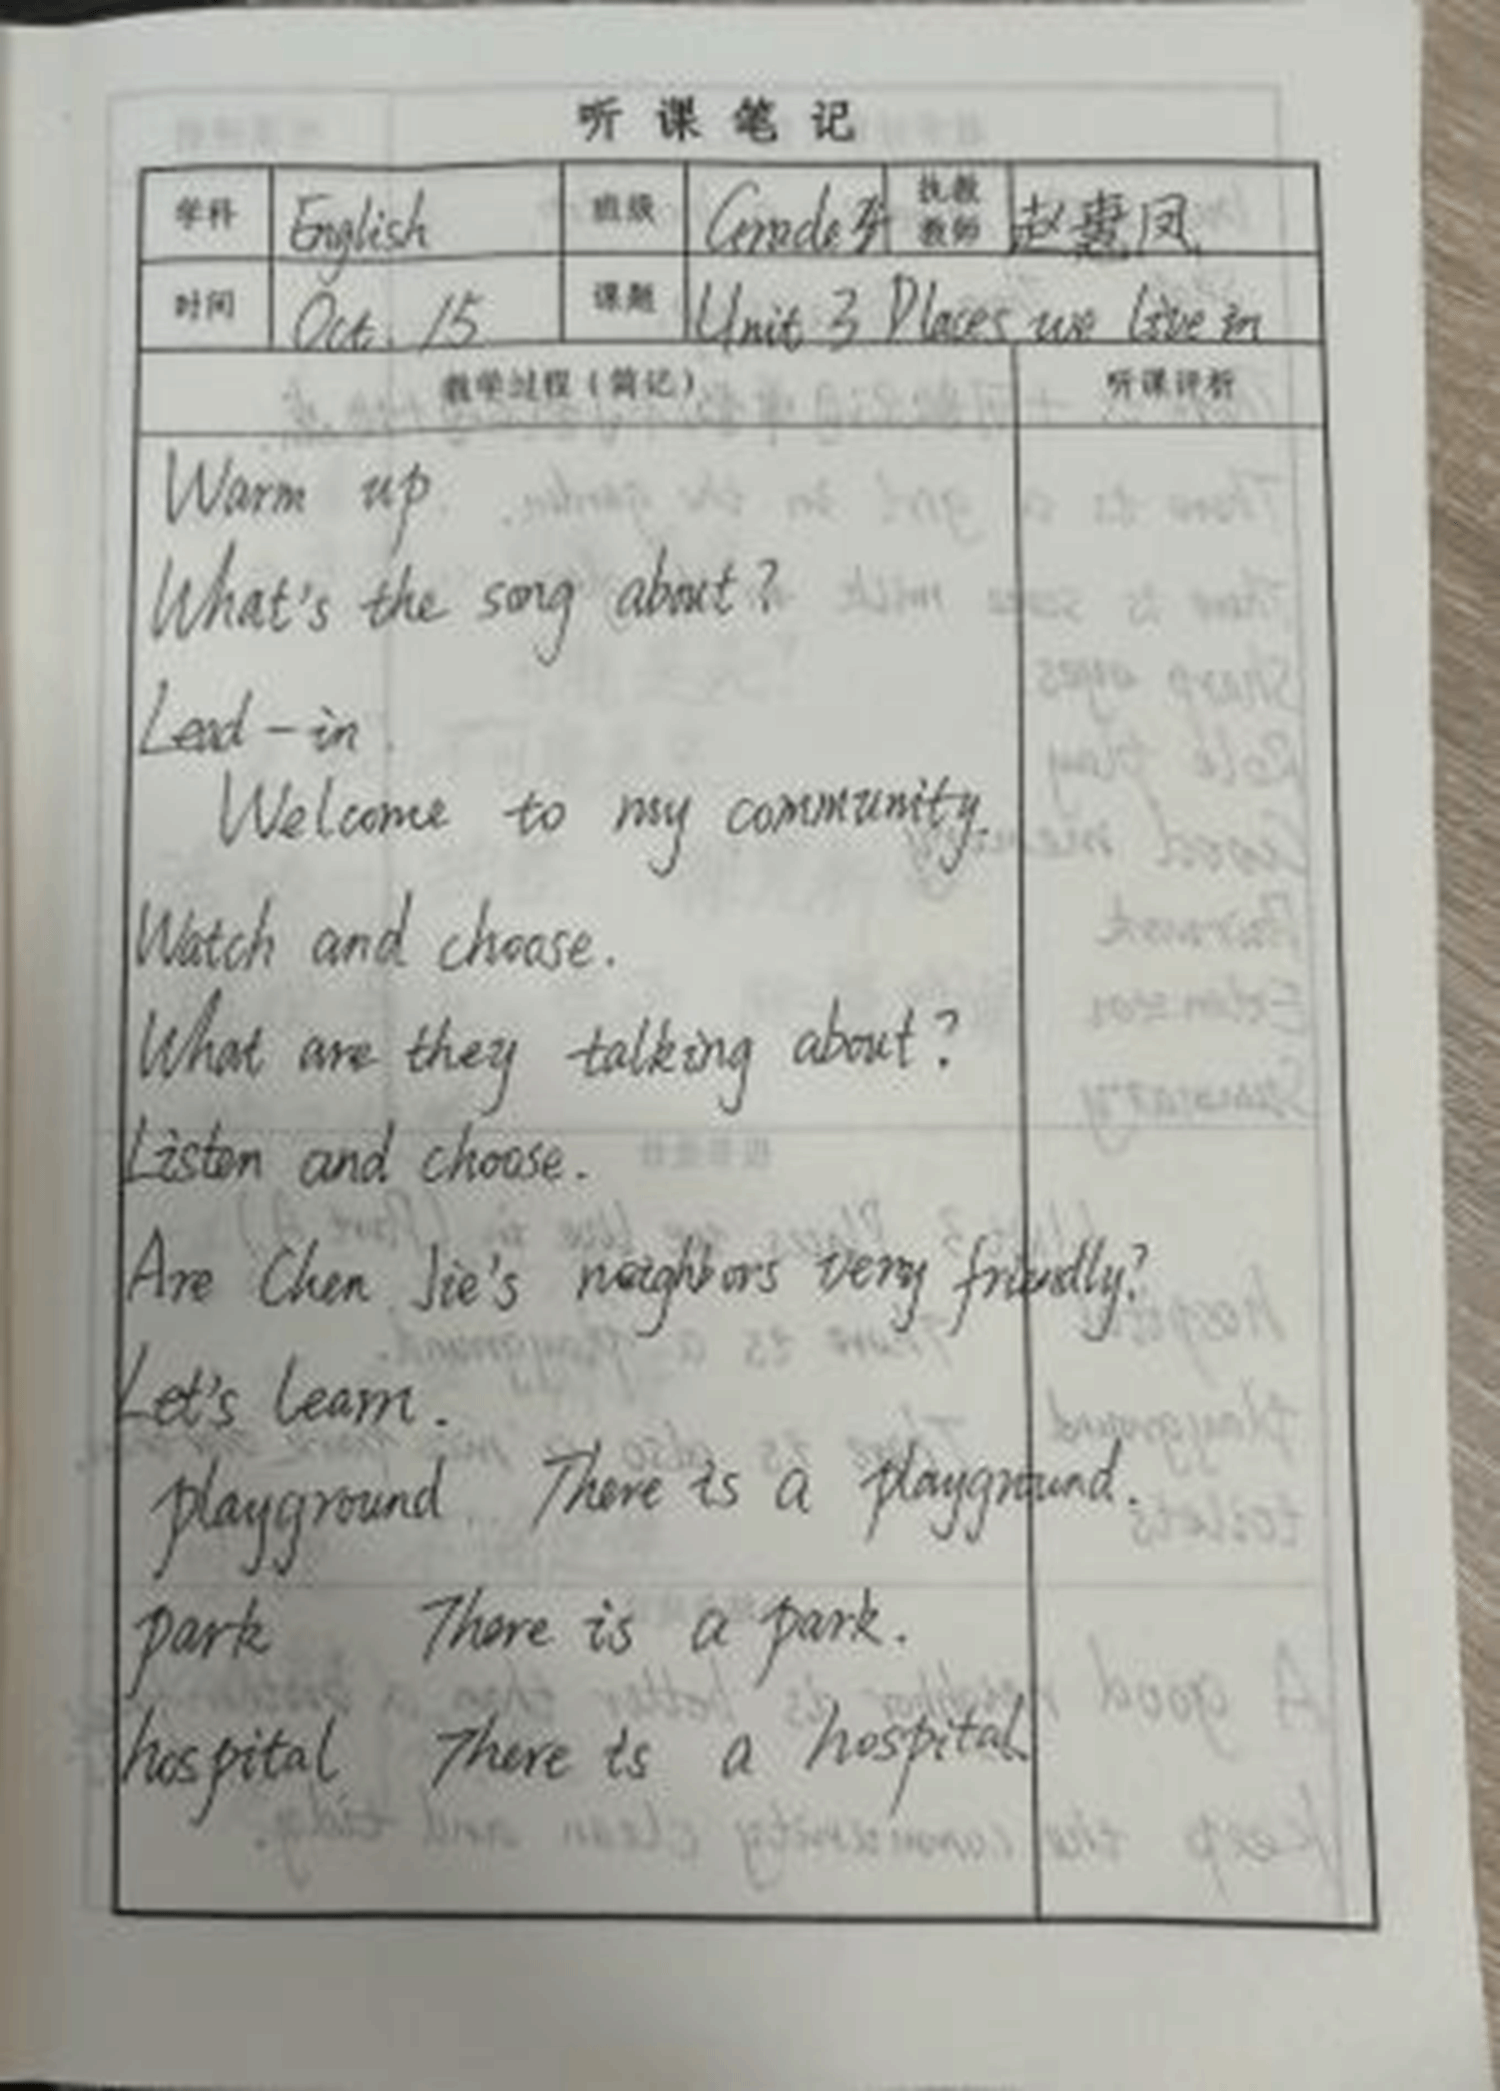 听课笔记
学科 English 班级 Grade 执教教师 赵惠凤
时间 Oct. 15 课题 Unit 3 Places we live in
教学过程（简记） 听课评析
Warm up
What's the song about?
Lead-in.
Welcome to my community.
Watch and choose.
What are they talking about?
Listen and choose.
Are Chen Jie's neighbors very friendly?
Let's learn.
playground There is a playground.
park There is a park.
hospital There is a hospital.